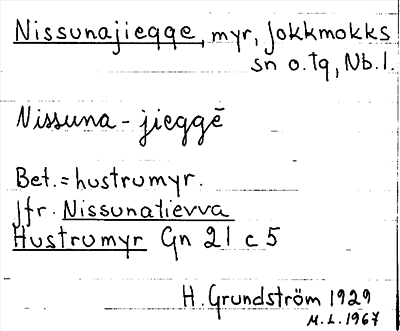 Nissunajiegge, myr, Jokkmokks
sn o. tg, Nb. l.
Nissuna - jieggē
Bet. = hustrumyr.
Jfr. Nissunatievva
Hustrumyr Gn 21 c 5
H. Grundström 1929
M. L. 1967